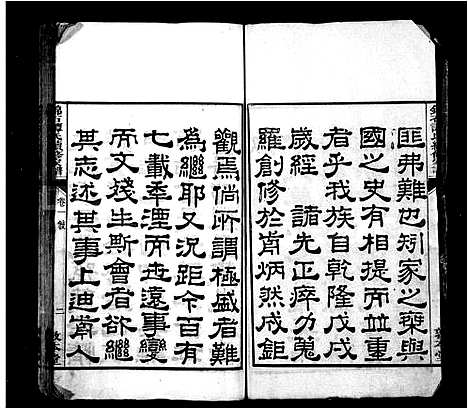 匪弗難也矧家之乘與
國之史有相提而並重
者乎我族自乾隆戊戌
歲經 諸先正瘁力蒐
羅創修於前炳然成鉅
觀焉倘所謂極盛者難
為繼耶又況距今百有
七載年湮而世遠事變
而文殘生斯會者欲繼
其志述其事上迪前人
卷一 敘
二 敦本堂